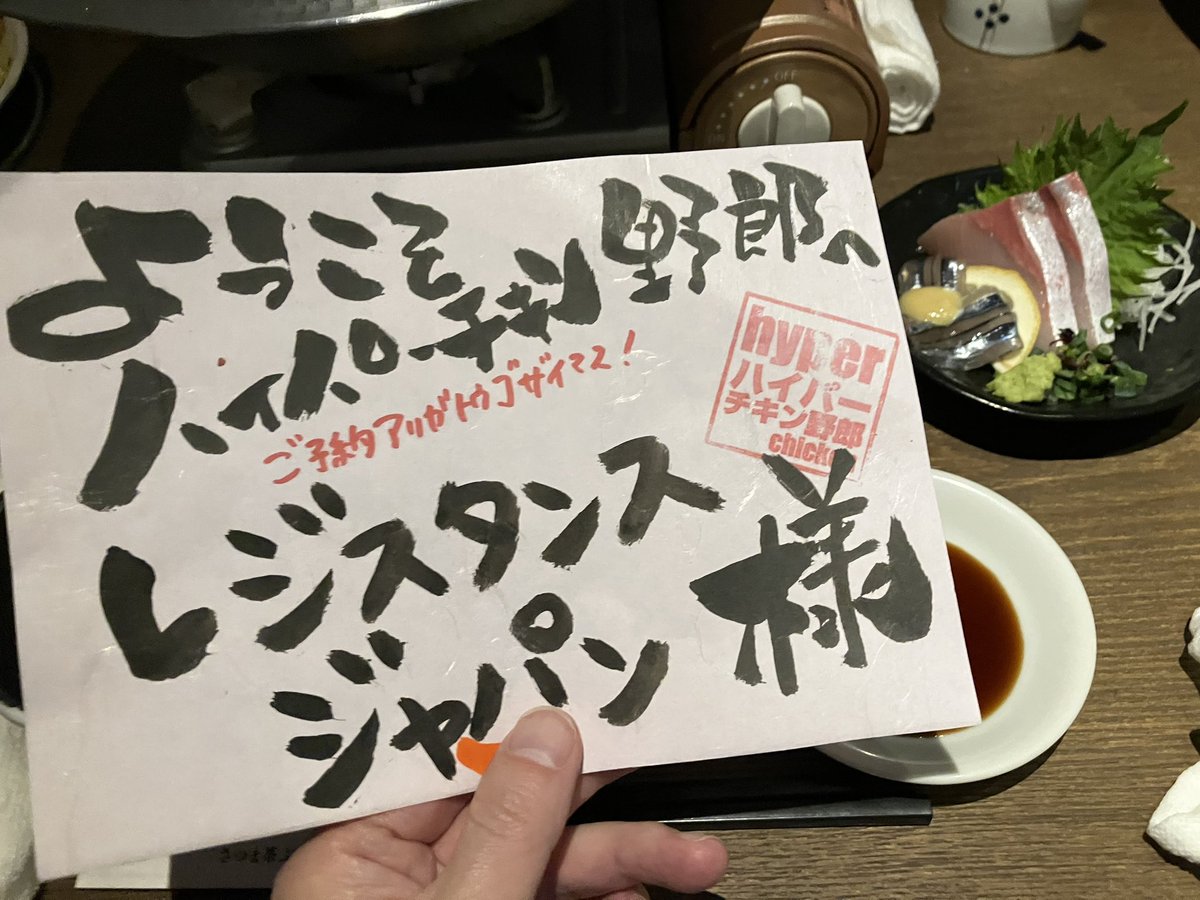 ようこそ
ハイパーチキン野郎へ
ご予約アリガトウゴザイマス!
hyper
ハイパー
チキン野郎
chick
レジスタンス
ジャパン
様
OFF